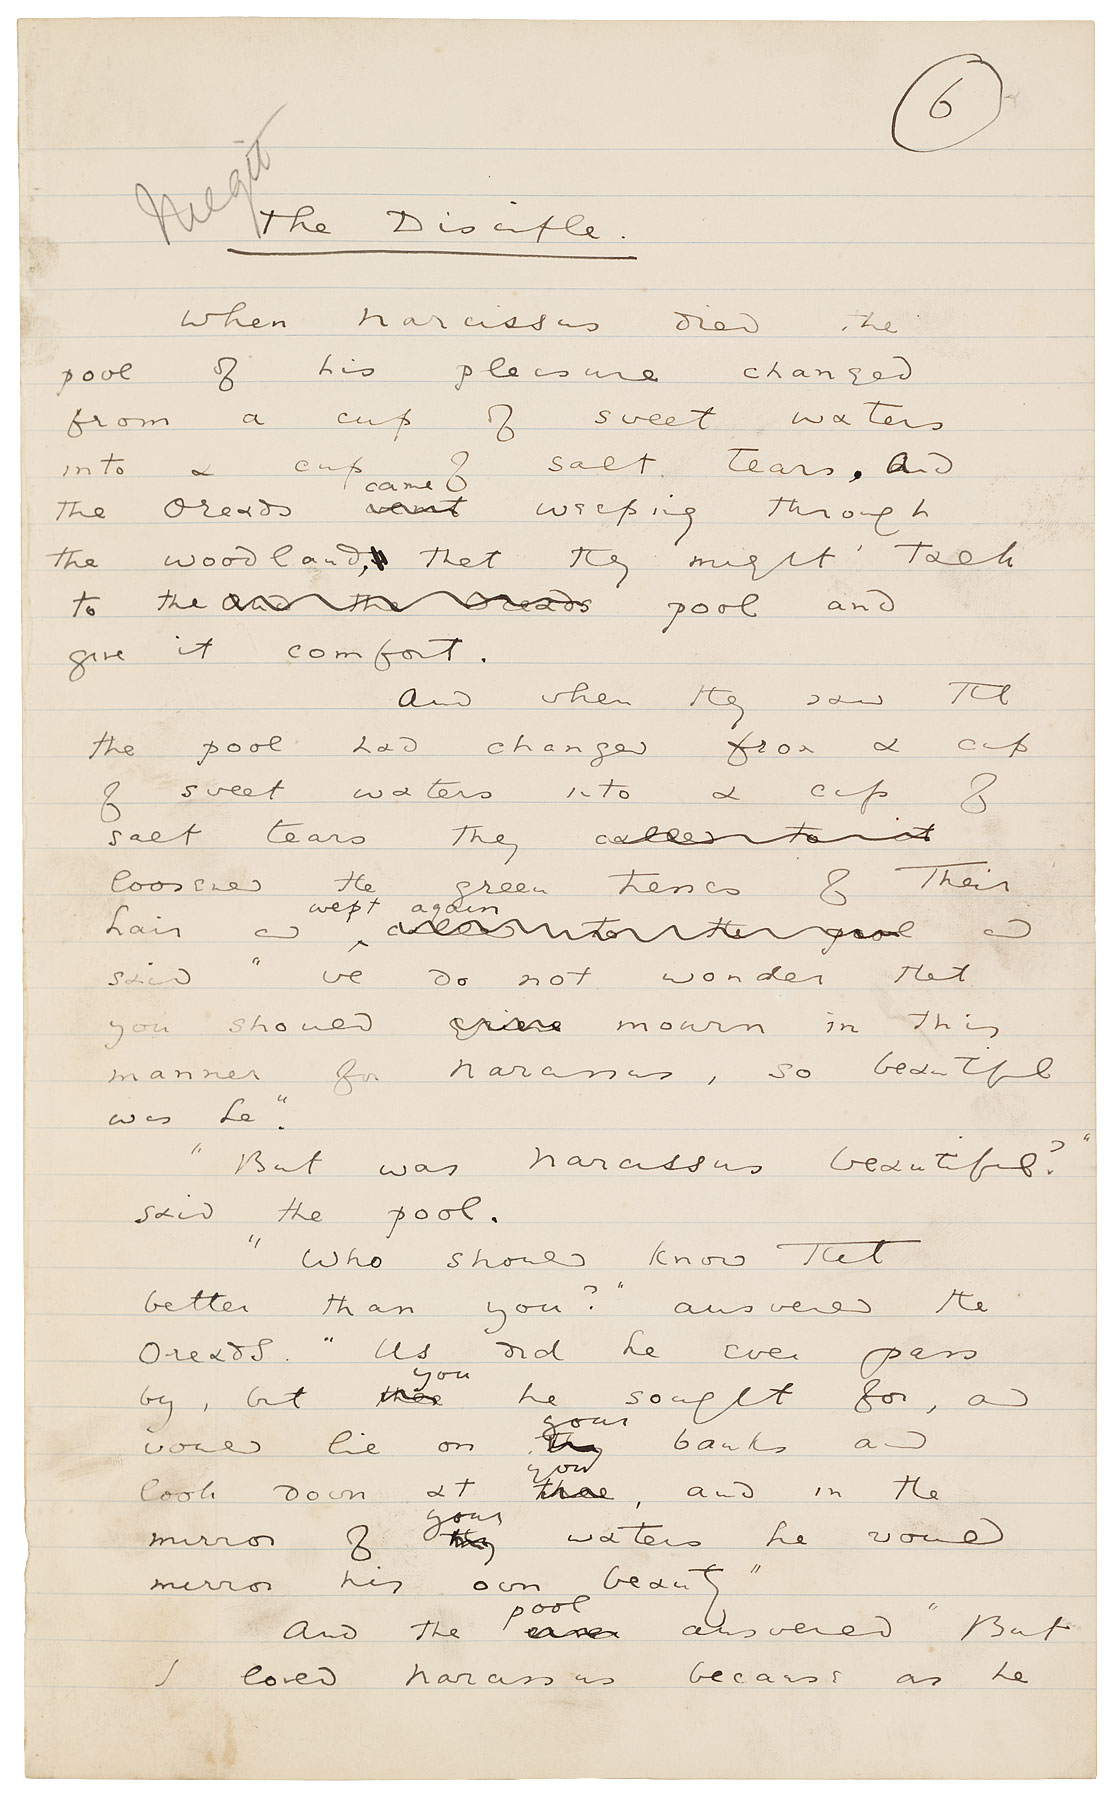 6
The Disciple.
When Narcissus died the
pool of his pleasure changed
from a cup of sweet waters
into a cup of salt tears, And
came
the Oreads went weeping through
the woodland, that they might talk
to the and the Oreads pool and
give it comfort.
And when they saw that
the pool had changed from a cup
of sweet waters into a cup of
salt tears they called to it
loosened the green tresses of their
wept again
hair and called to the pool and
said " we do not wonder that
you should grieve mourn in this
manner for Narcissus, so beautiful
was he".
"But was Narcissus beautiful?"
said the pool.
"Who should know that
better than you?" answered the
Oreads. "Us did he ever pass
you
by, but thee he sought for, and
your
would lie on thy banks and
you
look down at thee, and in the
your
mirror of thy waters he would
mirror his own beauty"
pool
And the answered "But
I loved Narcissus because as he